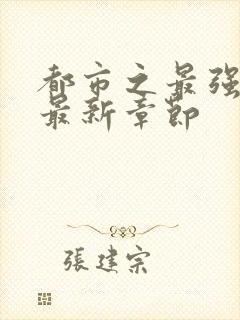 都市之最强
最新章節
張建宗